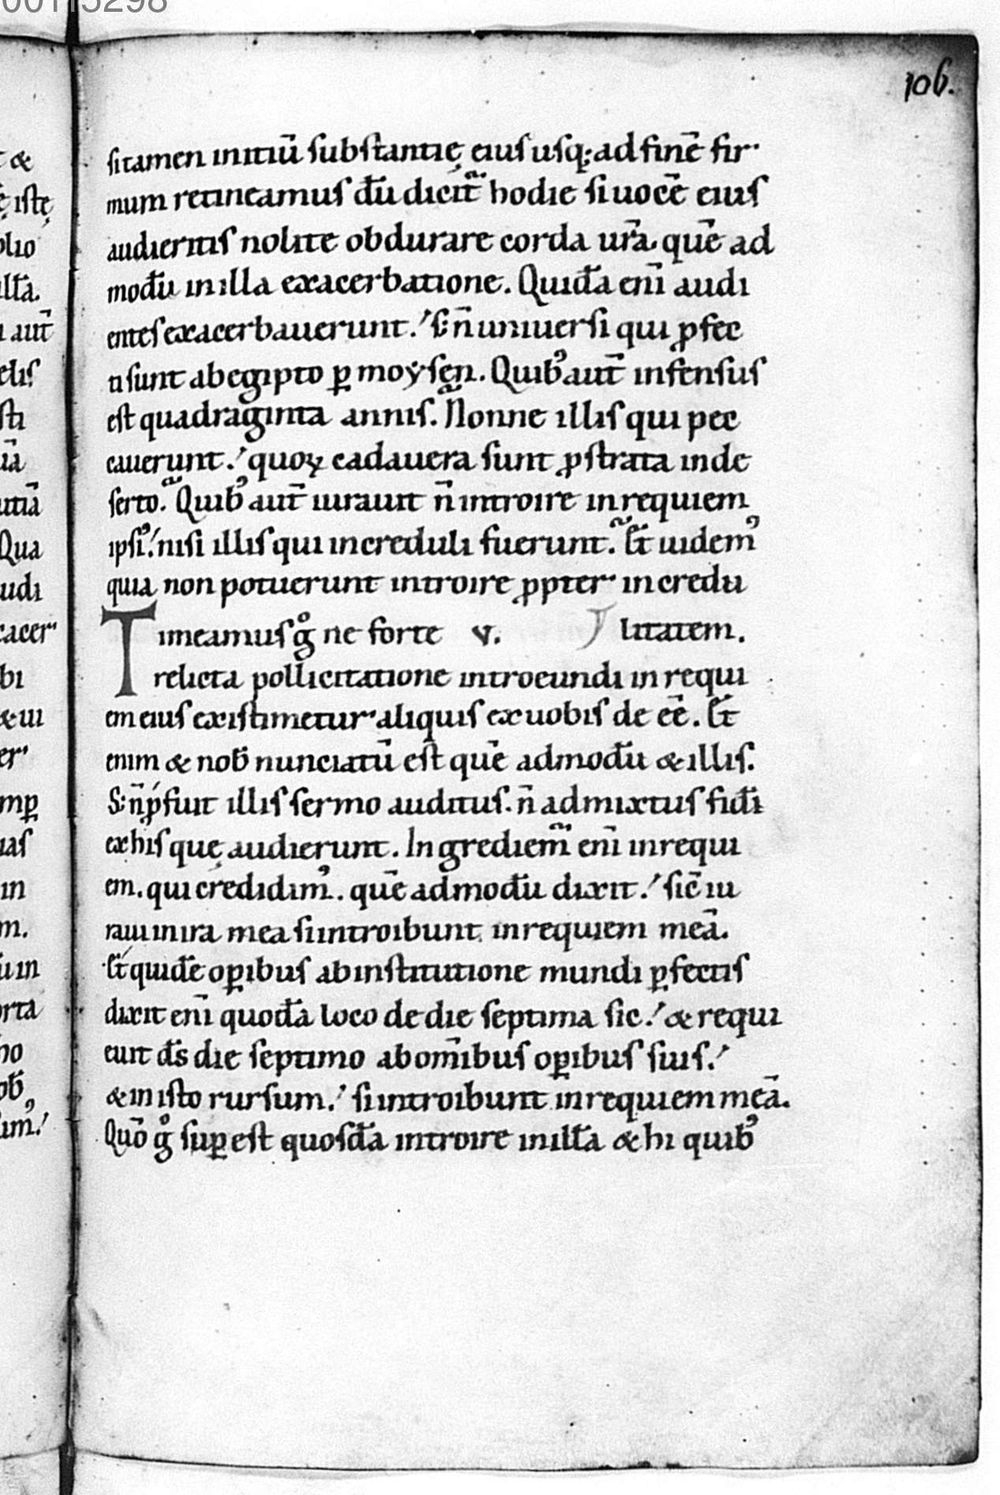 00115298
106.
si tamen initiū substantię eius usq; ad finē fir
mum retineamus dū dicit̄ hodie si uocē eius
audieritis nolite obdurare corda ur̄a. quē ad
modū in illa exacerbatione. Quidā enī audi
entes exacerbauerunt. S; n̄ uniuersi qui ꝓfec
ti sunt ab egipto ꝑ moẏsen. Quibꝰ aut̄ infensus
est quadraginta annis. Nonne illis qui pec
cauerunt. quoꝝ cadauera sunt ꝓstrata in de
serto. Quibꝰ aut̄ iurauit n̄ introire in requiem
ipsiꝰ. nisi illis qui increduli fuerunt. Et uidemꝰ
quia non potuerunt introire ꝓpter incredu
Timeamus gͦ ne forte v. litatem.
relicta pollicitatione introeundi in requi
em eius existimetur aliquis ex uobis de eē. Et
enim & nob̄ nunciatū est quē admodū & illis.
S; n̄ ꝓfuit illis sermo auditus. n̄ admixtus fidī
ex his quę audierunt. Ingrediem̄ enī in requi
em. qui credidimꝰ. quē admodū dixit. sic̄ iu
raui in ira mea si introibunt in requiem meā.
Et quidē oꝑibus ab institutione mundi ꝑfectis
dixit enī quodā loco de die septima sic. & requi
euit ds̄ die septimo ab om̄ibus oꝑibus suis.
& in isto rursum. si introibunt in requiem meā.
Quō gͦ suꝑest quosdā introire in illā & hi quibꝰ